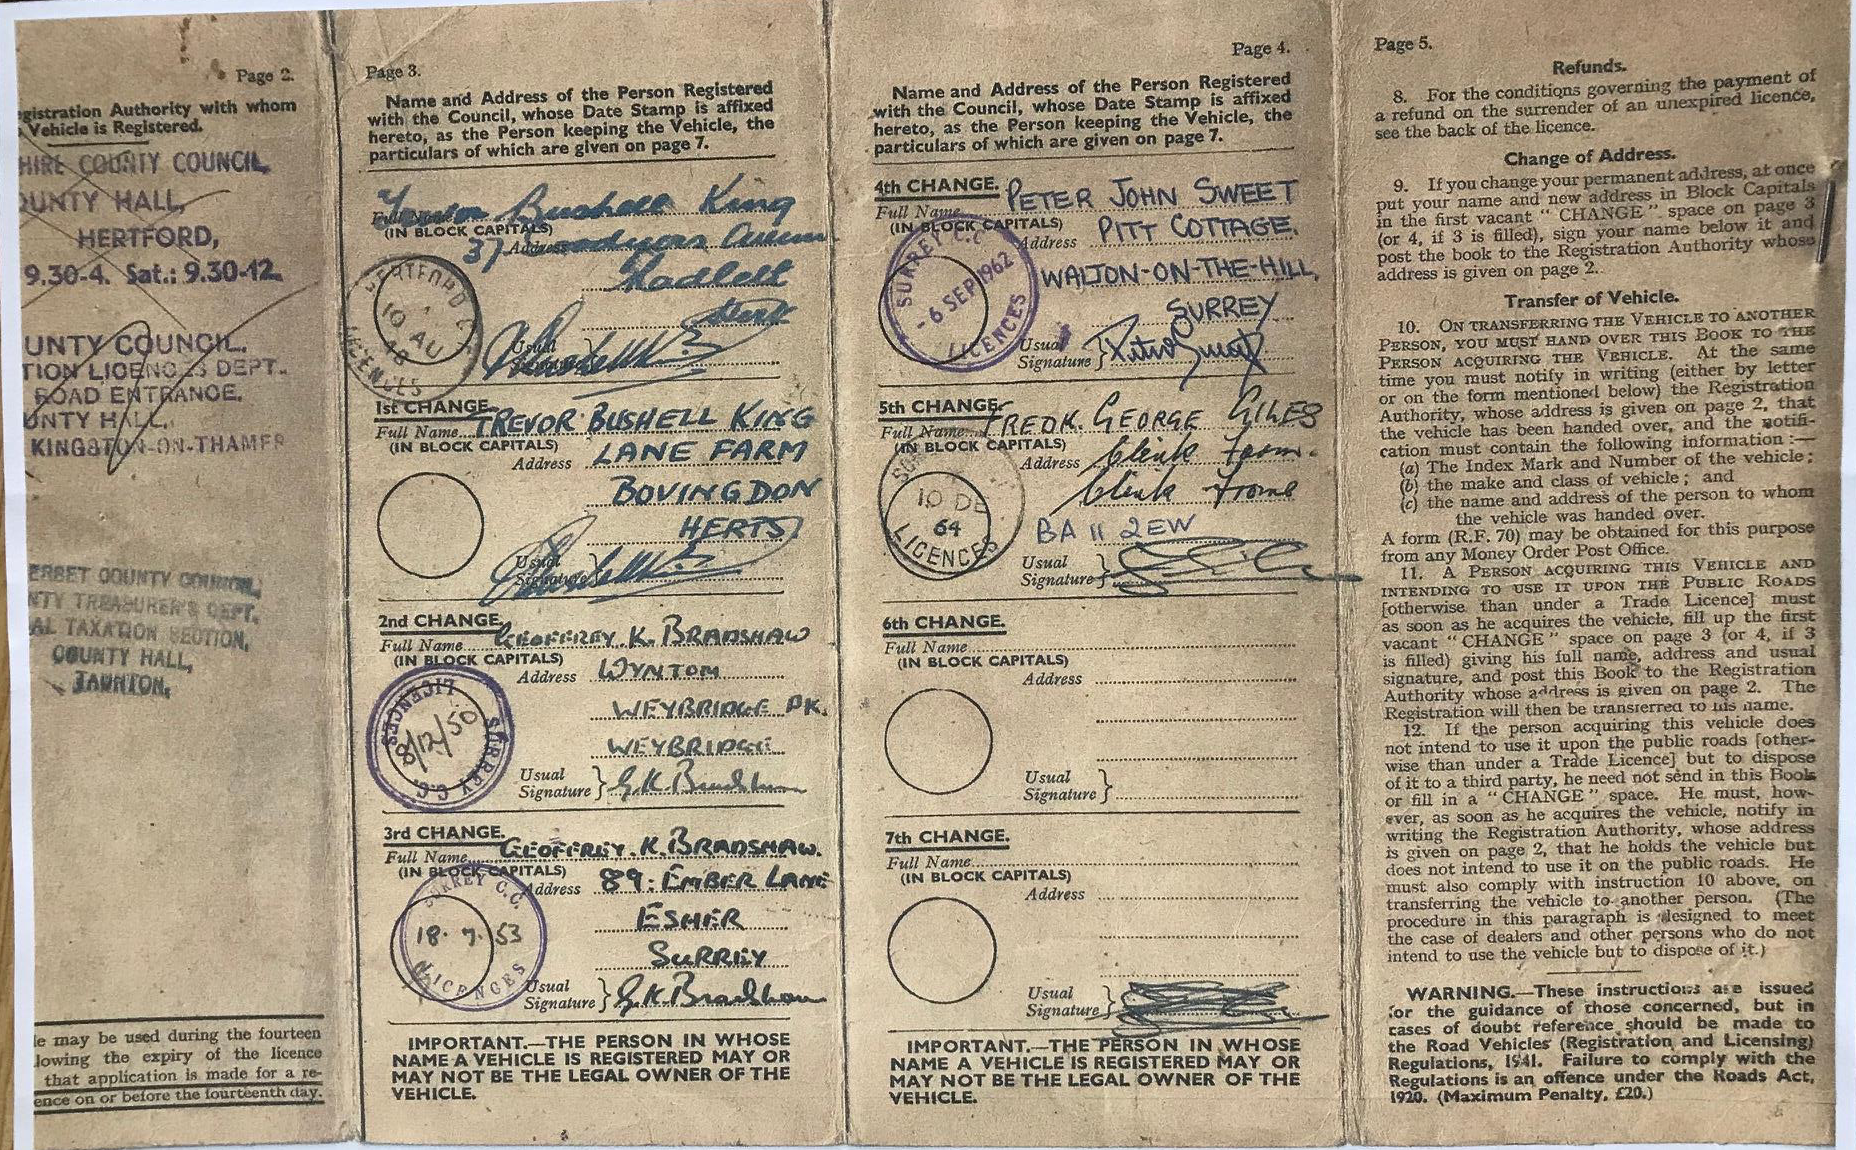 Page 2.
gistration Authority with whom
Vehicle is Registered.
HIRE COUNTY COUNCIL,
OUNTY HALL,
HERTFORD,
9.30-4. Sat.: 9.30-12.
UNTY COUNCIL.
TION LICENCES DEPT.
ROAD ENTRANCE.
UNTY HALL,
KINGSTON-ON-THAMES
ERSET COUNTY COUNCIL,
NTY TREASURER'S DEPT.
AL TAXATION SECTION,
COUNTY HALL,
TAUNTON.
le may be used during the fourteen
lowing the expiry of the licence
that application is made for a re-
ence on or before the fourteenth day.
Page 3.
Name and Address of the Person Registered
with the Council, whose Date Stamp is affixed
hereto, as the Person keeping the Vehicle, the
particulars of which are given on page 7.
Full Name Bushell King
(IN BLOCK CAPITALS)
37 Address
Radlett
Herts
HERTFORD C.C.
10 AU
48
LICENCES
Usual
Signature
1st CHANGE.
Full Name TREVOR BUSHELL KING
(IN BLOCK CAPITALS)
Address LANE FARM
BOVINGDON
HERTS
Usual
Signature
2nd CHANGE.
Full Name GEOFFREY. K. BRADSHAW
(IN BLOCK CAPITALS)
Address WYNTOM
WEYBRIDGE PK.
WEYBRIDGE
SURREY C.C.
8/12/50
LICENCES
Usual
Signature G.K. Bradshaw
3rd CHANGE.
Full Name GEOFFREY. K. BRADSHAW.
(IN BLOCK CAPITALS)
Address 89. EMBER LANE
ESHER
SURREY
SURREY C.C.
18. 7. 53
LICENCES
Usual
Signature G.K. Bradshaw
IMPORTANT.—THE PERSON IN WHOSE
NAME A VEHICLE IS REGISTERED MAY OR
MAY NOT BE THE LEGAL OWNER OF THE
VEHICLE.
Page 4.
Name and Address of the Person Registered
with the Council, whose Date Stamp is affixed
hereto, as the Person keeping the Vehicle, the
particulars of which are given on page 7.
4th CHANGE.
Full Name PETER JOHN SWEET
(IN BLOCK CAPITALS)
Address PITT COTTAGE,
WALTON-ON-THE-HILL,
SURREY
SURREY C.C.
- 6 SEP 1962
LICENCES
Usual
Signature
5th CHANGE.
Full Name FREDK. GEORGE GILES
(IN BLOCK CAPITALS)
Address Clink Farm.
Clink Frome
BA 11 2EW
10 DE
64
LICENCES
Usual
Signature
6th CHANGE.
Full Name
(IN BLOCK CAPITALS)
Address
Usual
Signature
7th CHANGE.
Full Name
(IN BLOCK CAPITALS)
Address
Usual
Signature
IMPORTANT.—THE PERSON IN WHOSE
NAME A VEHICLE IS REGISTERED MAY OR
MAY NOT BE THE LEGAL OWNER OF THE
VEHICLE.
Page 5.
Refunds.
8. For the conditions governing the payment of
a refund on the surrender of an unexpired licence,
see the back of the licence.
Change of Address.
9. If you change your permanent address, at once
put your name and new address in Block Capitals
in the first vacant "CHANGE" space on page 3
(or 4, if 3 is filled), sign your name below it and
post the book to the Registration Authority whose
address is given on page 2.
Transfer of Vehicle.
10. ON TRANSFERRING THE VEHICLE TO ANOTHER
PERSON, YOU MUST HAND OVER THIS BOOK TO THE
PERSON ACQUIRING THE VEHICLE. At the same
time you must notify in writing (either by letter
or on the form mentioned below) the Registration
Authority, whose address is given on page 2, that
the vehicle has been handed over, and the notifi-
cation must contain the following information :—
(a) The Index Mark and Number of the vehicle;
(b) the make and class of vehicle; and
(c) the name and address of the person to whom
the vehicle was handed over.
A form (R.F. 70) may be obtained for this purpose
from any Money Order Post Office.
11. A PERSON ACQUIRING THIS VEHICLE AND
INTENDING TO USE IT UPON THE PUBLIC ROADS
[otherwise than under a Trade Licence] must
as soon as he acquires the vehicle, fill up the first
vacant "CHANGE" space on page 3 (or 4, if 3
is filled) giving his full name, address and usual
signature, and post this Book to the Registration
Authority whose address is given on page 2. The
Registration will then be transferred to his name.
12. If the person acquiring this vehicle does
not intend to use it upon the public roads [other-
wise than under a Trade Licence] but to dispose
of it to a third party, he need not send in this Book
or fill in a "CHANGE" space. He must, how-
ever, as soon as he acquires the vehicle, notify in
writing the Registration Authority, whose address
is given on page 2, that he holds the vehicle but
does not intend to use it on the public roads. He
must also comply with instruction 10 above, on
transferring the vehicle to another person. (The
procedure in this paragraph is designed to meet
the case of dealers and other persons who do not
intend to use the vehicle but to dispose of it.)
WARNING.—These instructions are issued
for the guidance of those concerned, but in
cases of doubt reference should be made to
the Road Vehicles (Registration and Licensing)
Regulations, 1941. Failure to comply with the
Regulations is an offence under the Roads Act,
1920. (Maximum Penalty, £20.)